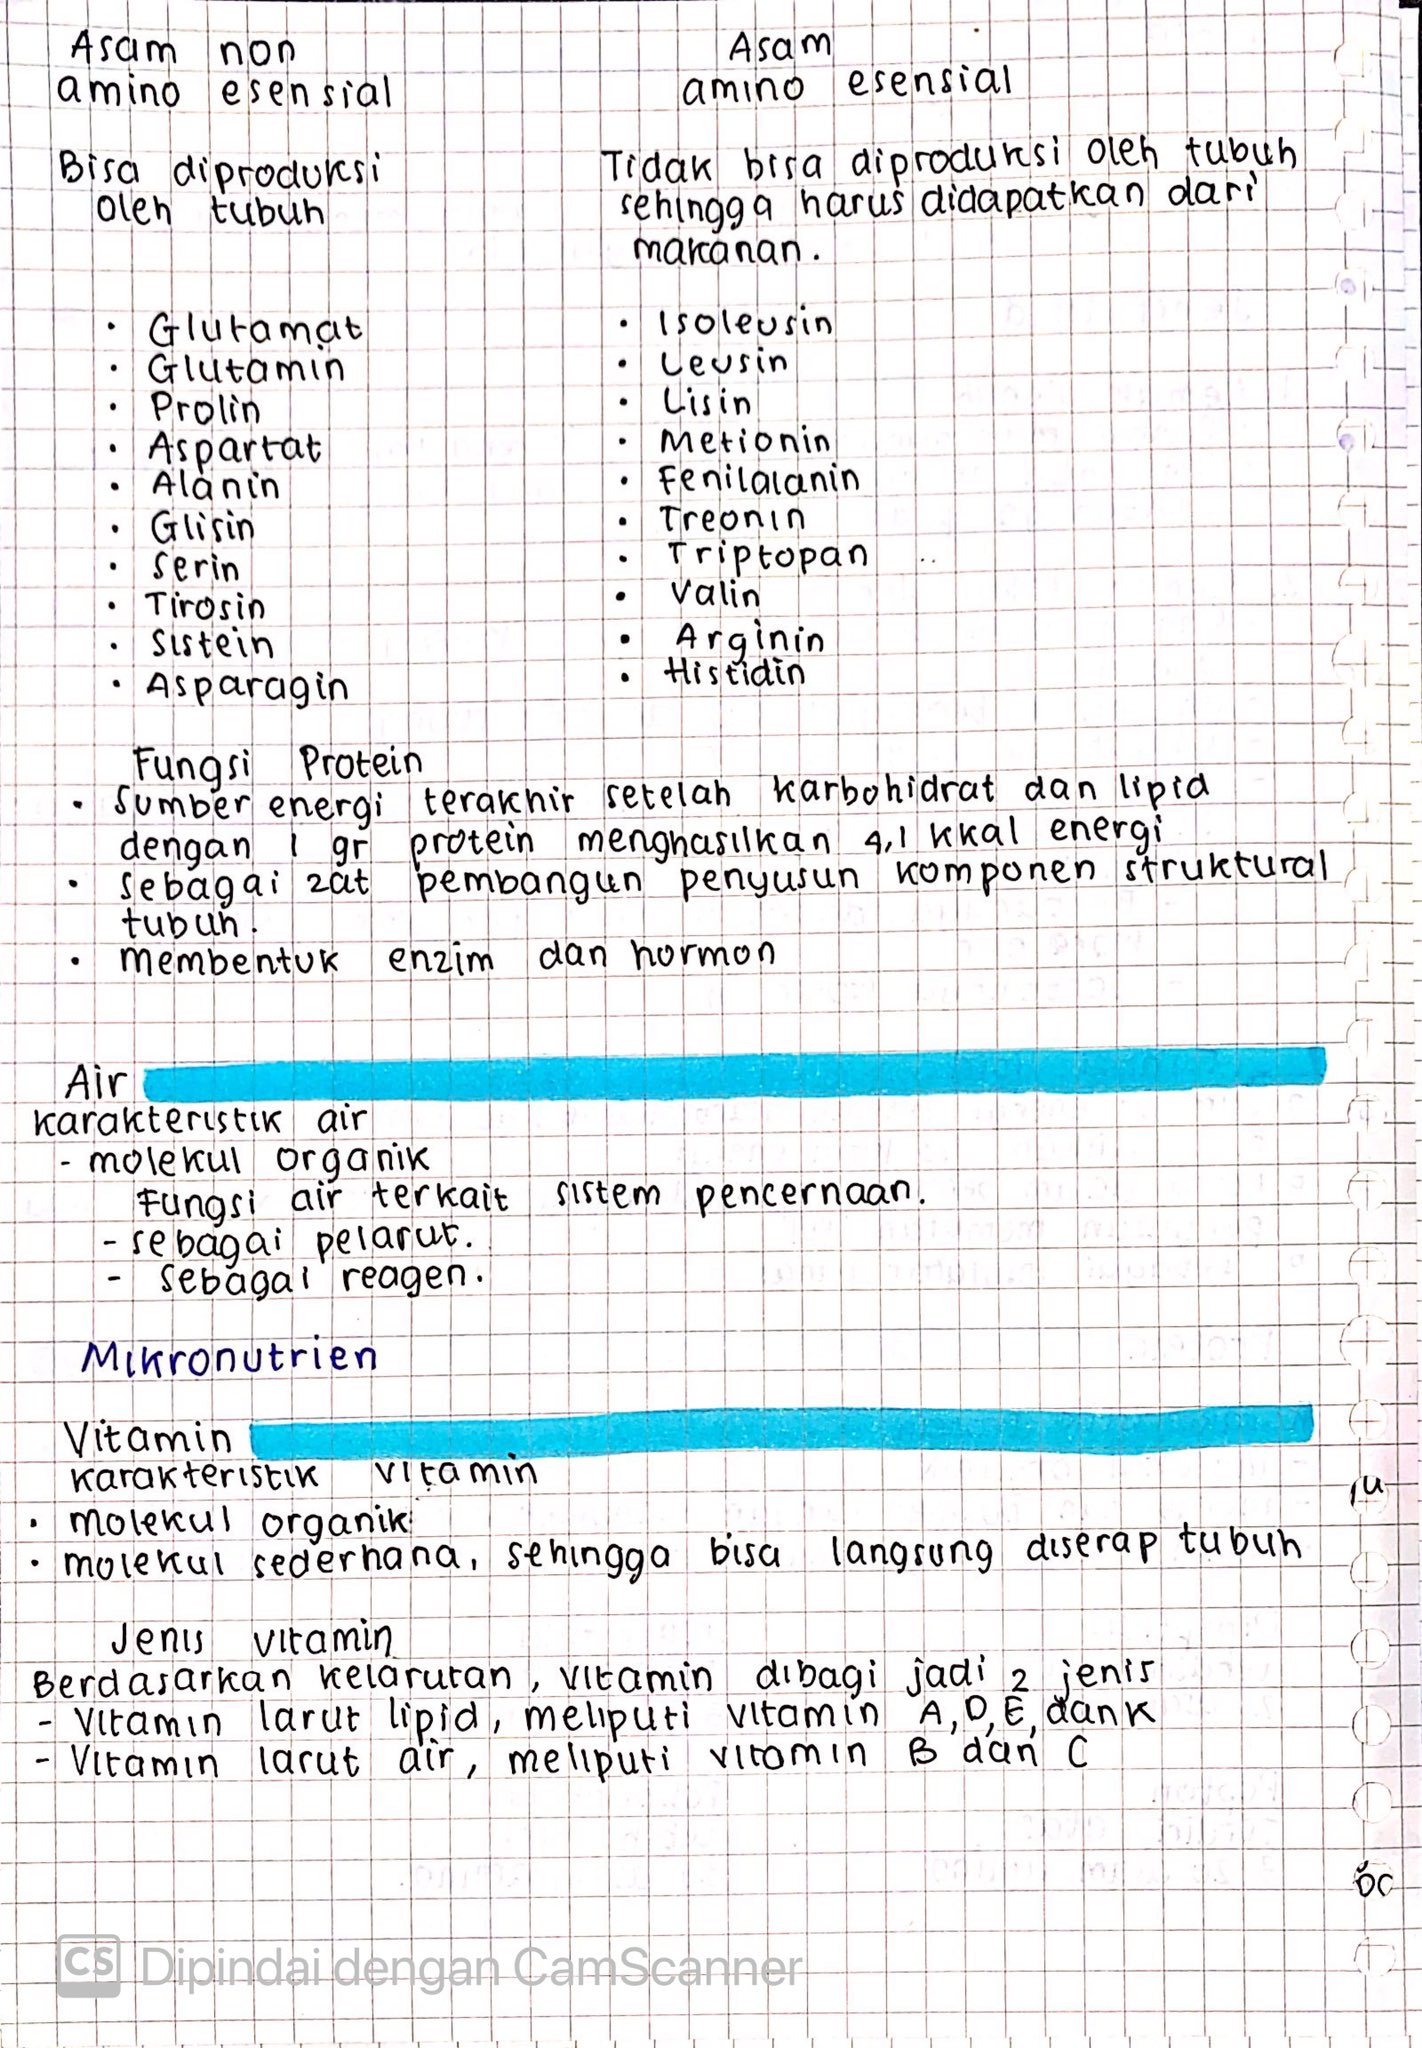 Asam non
amino esensial
Bisa diproduksi
oleh tubuh
• Glutamat
• Glutamin
• Prolin
• Aspartat
• Alanin
• Glisin
• Serin
• Tirosin
• Sistein
• Asparagin
Asam
amino esensial
Tidak bisa diproduksi oleh tubuh
sehingga harus didapatkan dari
makanan.
• Isoleusin
• Leusin
• Lisin
• Metionin
• Fenilalanin
• Treonin
• Triptopan
• Valin
• Arginin
• Histidin
Fungsi Protein
• Sumber energi terakhir setelah karbohidrat dan lipid
dengan 1 gr protein menghasilkan 4,1 kkal energi
• sebagai zat pembangun penyusun komponen struktural
tubuh.
• membentuk enzim dan hormon
Air
karakteristik air
- molekul organik
Fungsi air terkait sistem pencernaan.
- sebagai pelarut.
- sebagai reagen.
Mikronutrien
Vitamin
karakteristik vitamin
• molekul organik
• molekul sederhana, sehingga bisa langsung diserap tubuh
Jenis vitamin
Berdasarkan kelarutan, vitamin dibagi jadi 2 jenis
- Vitamin larut lipid, meliputi vitamin A, D, E, dan K
- Vitamin larut air, meliputi vitamin B dan C
CS Dipindai dengan CamScanner